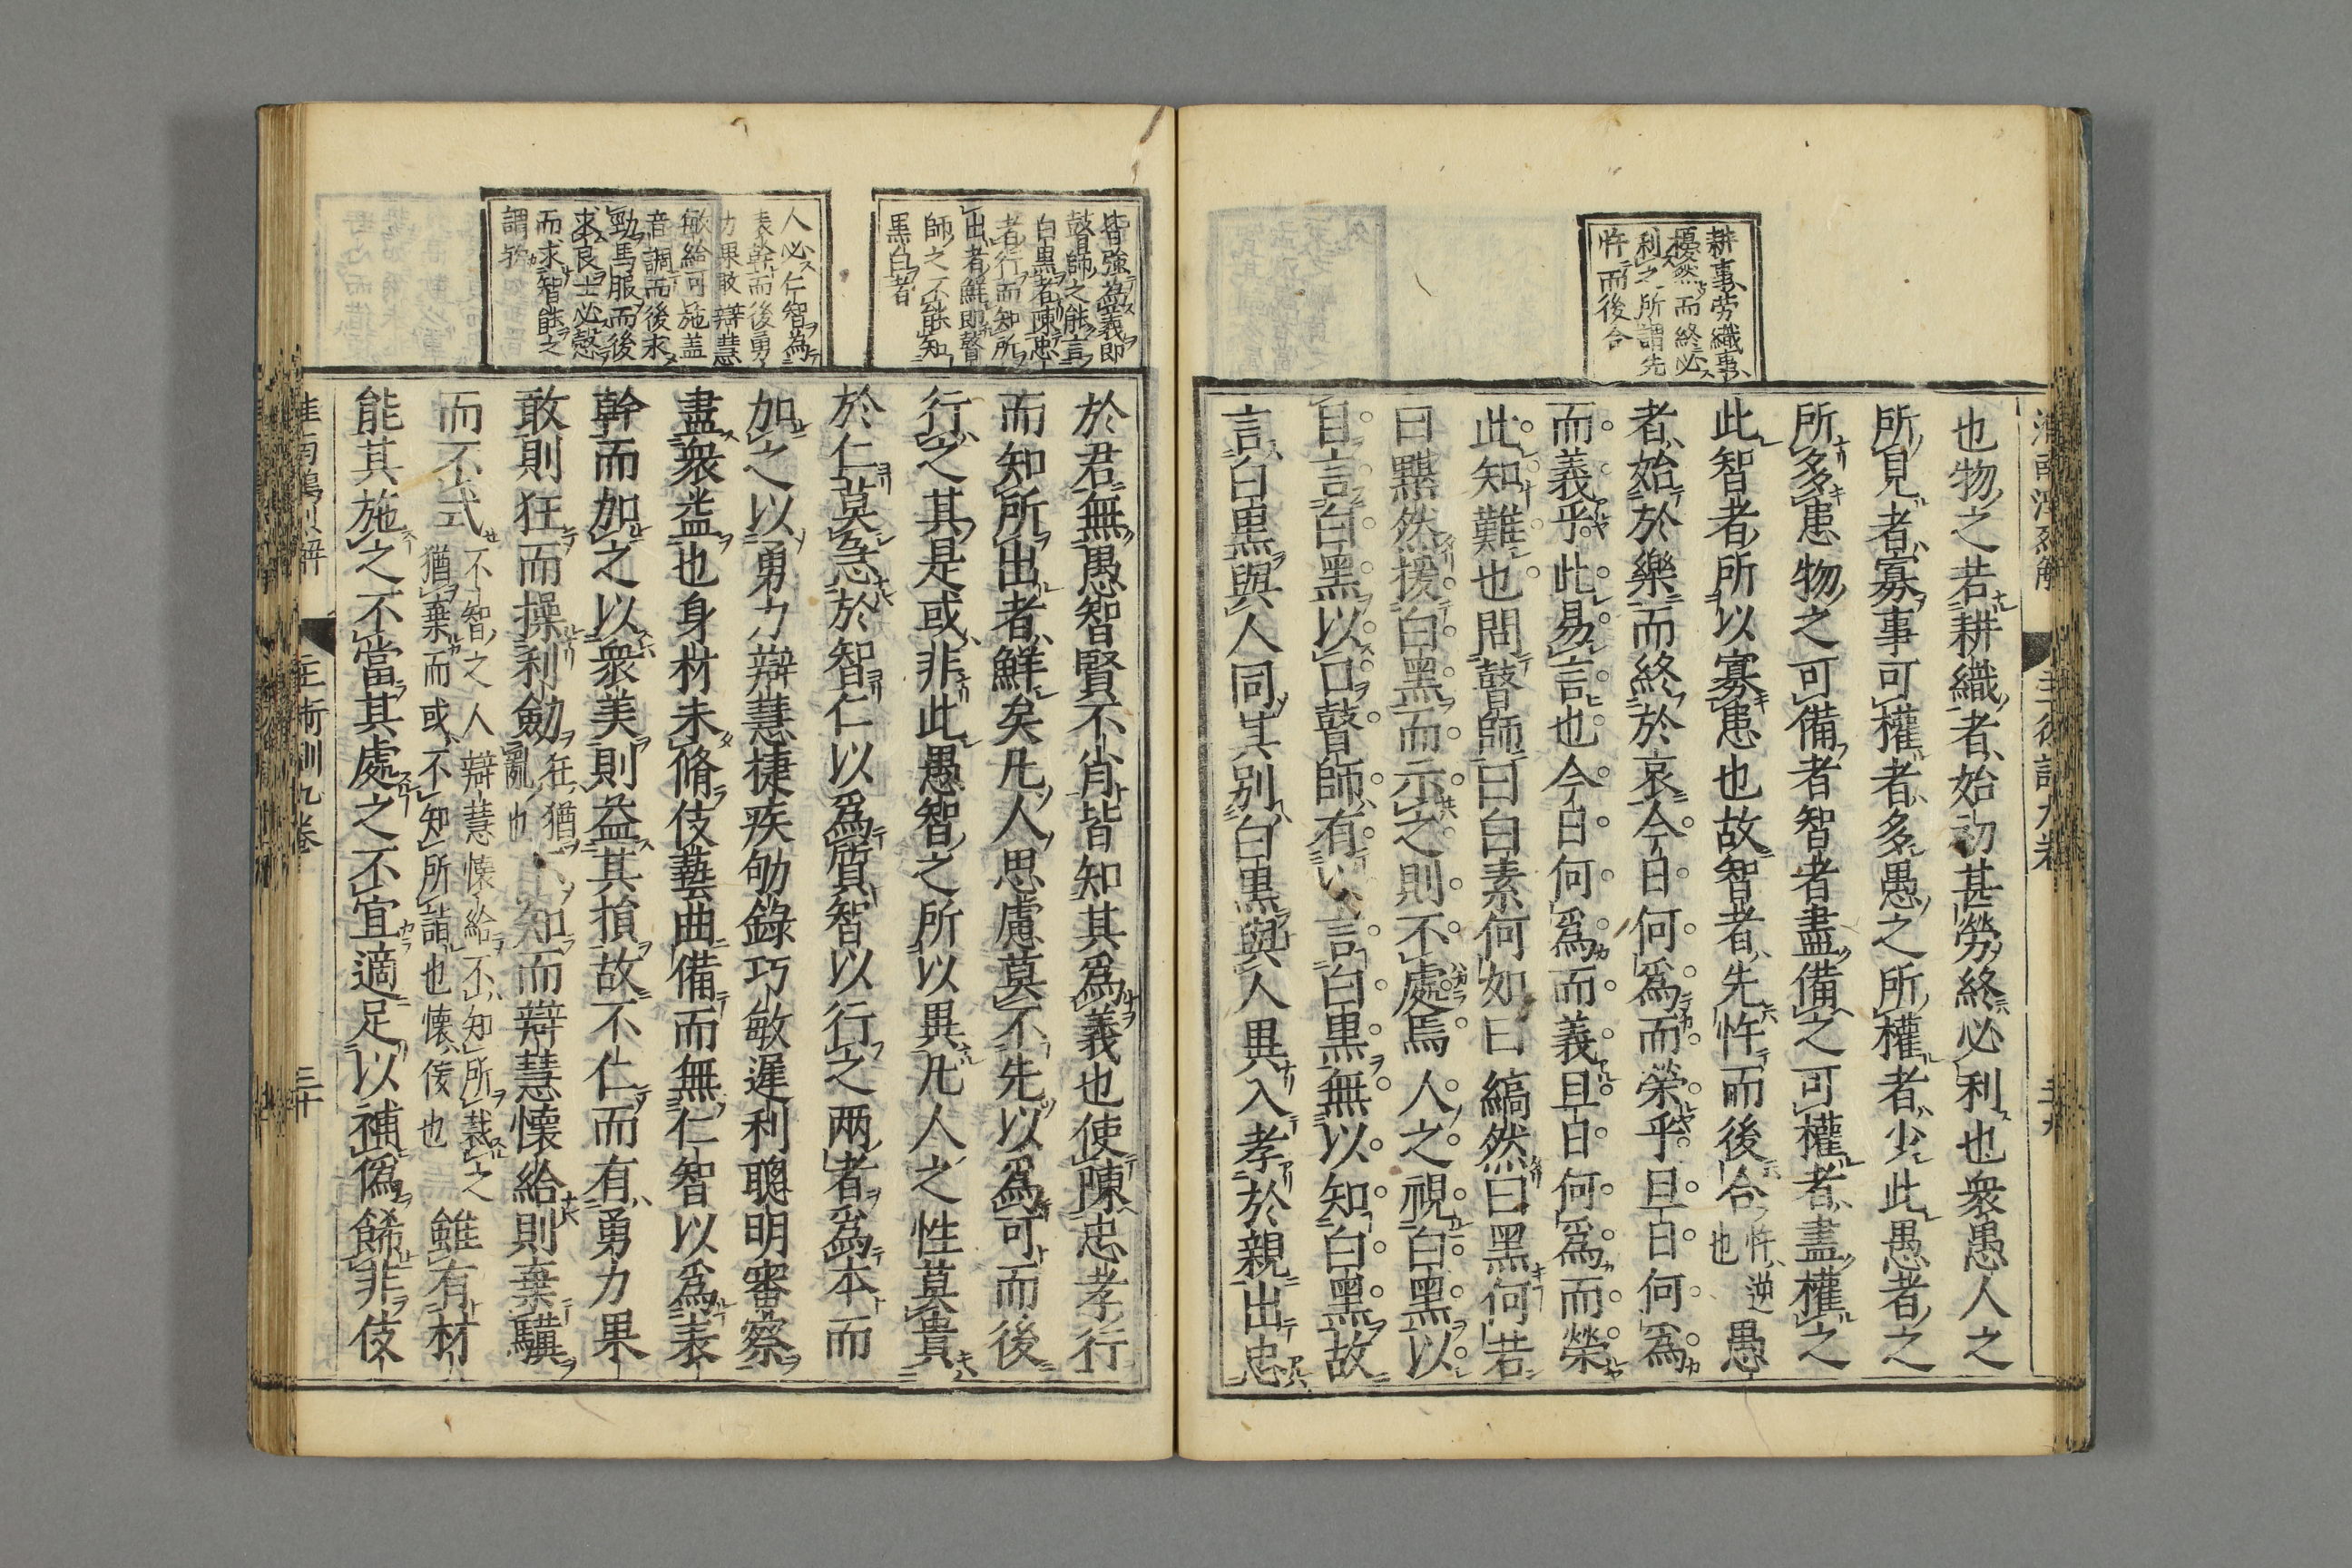 耕事、労織事、
擾然而終必
利之所謂先
忤而後合
也物之若耕織者始初甚勞終必利也衆愚人之
所見者寡事可權者多愚之所權者少此愚者之
所多患物之可備者智者盡備之可權者盡權之
此智者所以寡患也故智者先忤而後合忤逆也愚
者始於樂而終於哀今日何爲而榮乎旦日何爲
而義乎此易言也今日何爲而義旦日何爲而榮
此知難也問瞽師曰白素何如曰縞然曰黑何若
曰黮然援白黑而示之則不處焉人之視白黑以
目言白黑以口瞽師有以言白黑無以知白黑故
言白黑與人同其別白黑與人異入孝於親出忠
皆強為義即
瞽師之能言
白黒者陳忠
者行而知所
出者鮮即瞽
師之不能知
黒白者
人必仁智為
表幹而後勇
力果敢辯慧
敏給可施盖
音調而後求
勁馬服而後
求良士必愨
而求智能之
謂
於君無愚智賢不肖皆知其爲義也使陳忠孝行
而知所出者鮮矣凡人思慮莫不先以爲可而後
行之其是或非此愚智之所以異凡人之性莫貴
於仁莫急於智仁以爲質智以行之兩者爲本而
加之以勇力辯慧捷疾劬錄巧敏遲利聰明審察
盡衆益也身材未脩伎藝曲備而無仁智以爲表
幹而加之以衆美則益其損故不仁而有勇力果
敢則狂而操利劒狂猶亂也不知而辯慧懷給則棄驥
而不式不智之人辯慧懷給不知所裁之猶棄而或不知所詣也懷佞也雖有材
能其施之不當其處之不宜適足以補僞餙非伎
主術訓九卷
三十